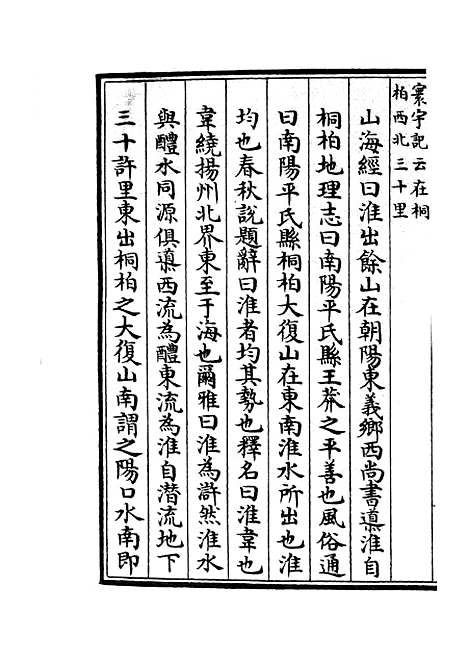 寰宇記云在桐
柏西北三十里
山海經曰淮出餘山在朝陽東義鄉西尚書導淮自
桐柏地理志曰南陽平氏縣王莽之平善也風俗通
曰南陽平氏縣桐柏大復山在東南淮水所出也淮
均也春秋說題辭曰淮者均其勢也釋名曰淮韋也
韋繞揚州北界東至于海也爾雅曰淮為滸然淮水
與醴水同源俱導西流為醴東流為淮自潜流地下
三十許里東出桐柏之大復山南謂之陽口水南即